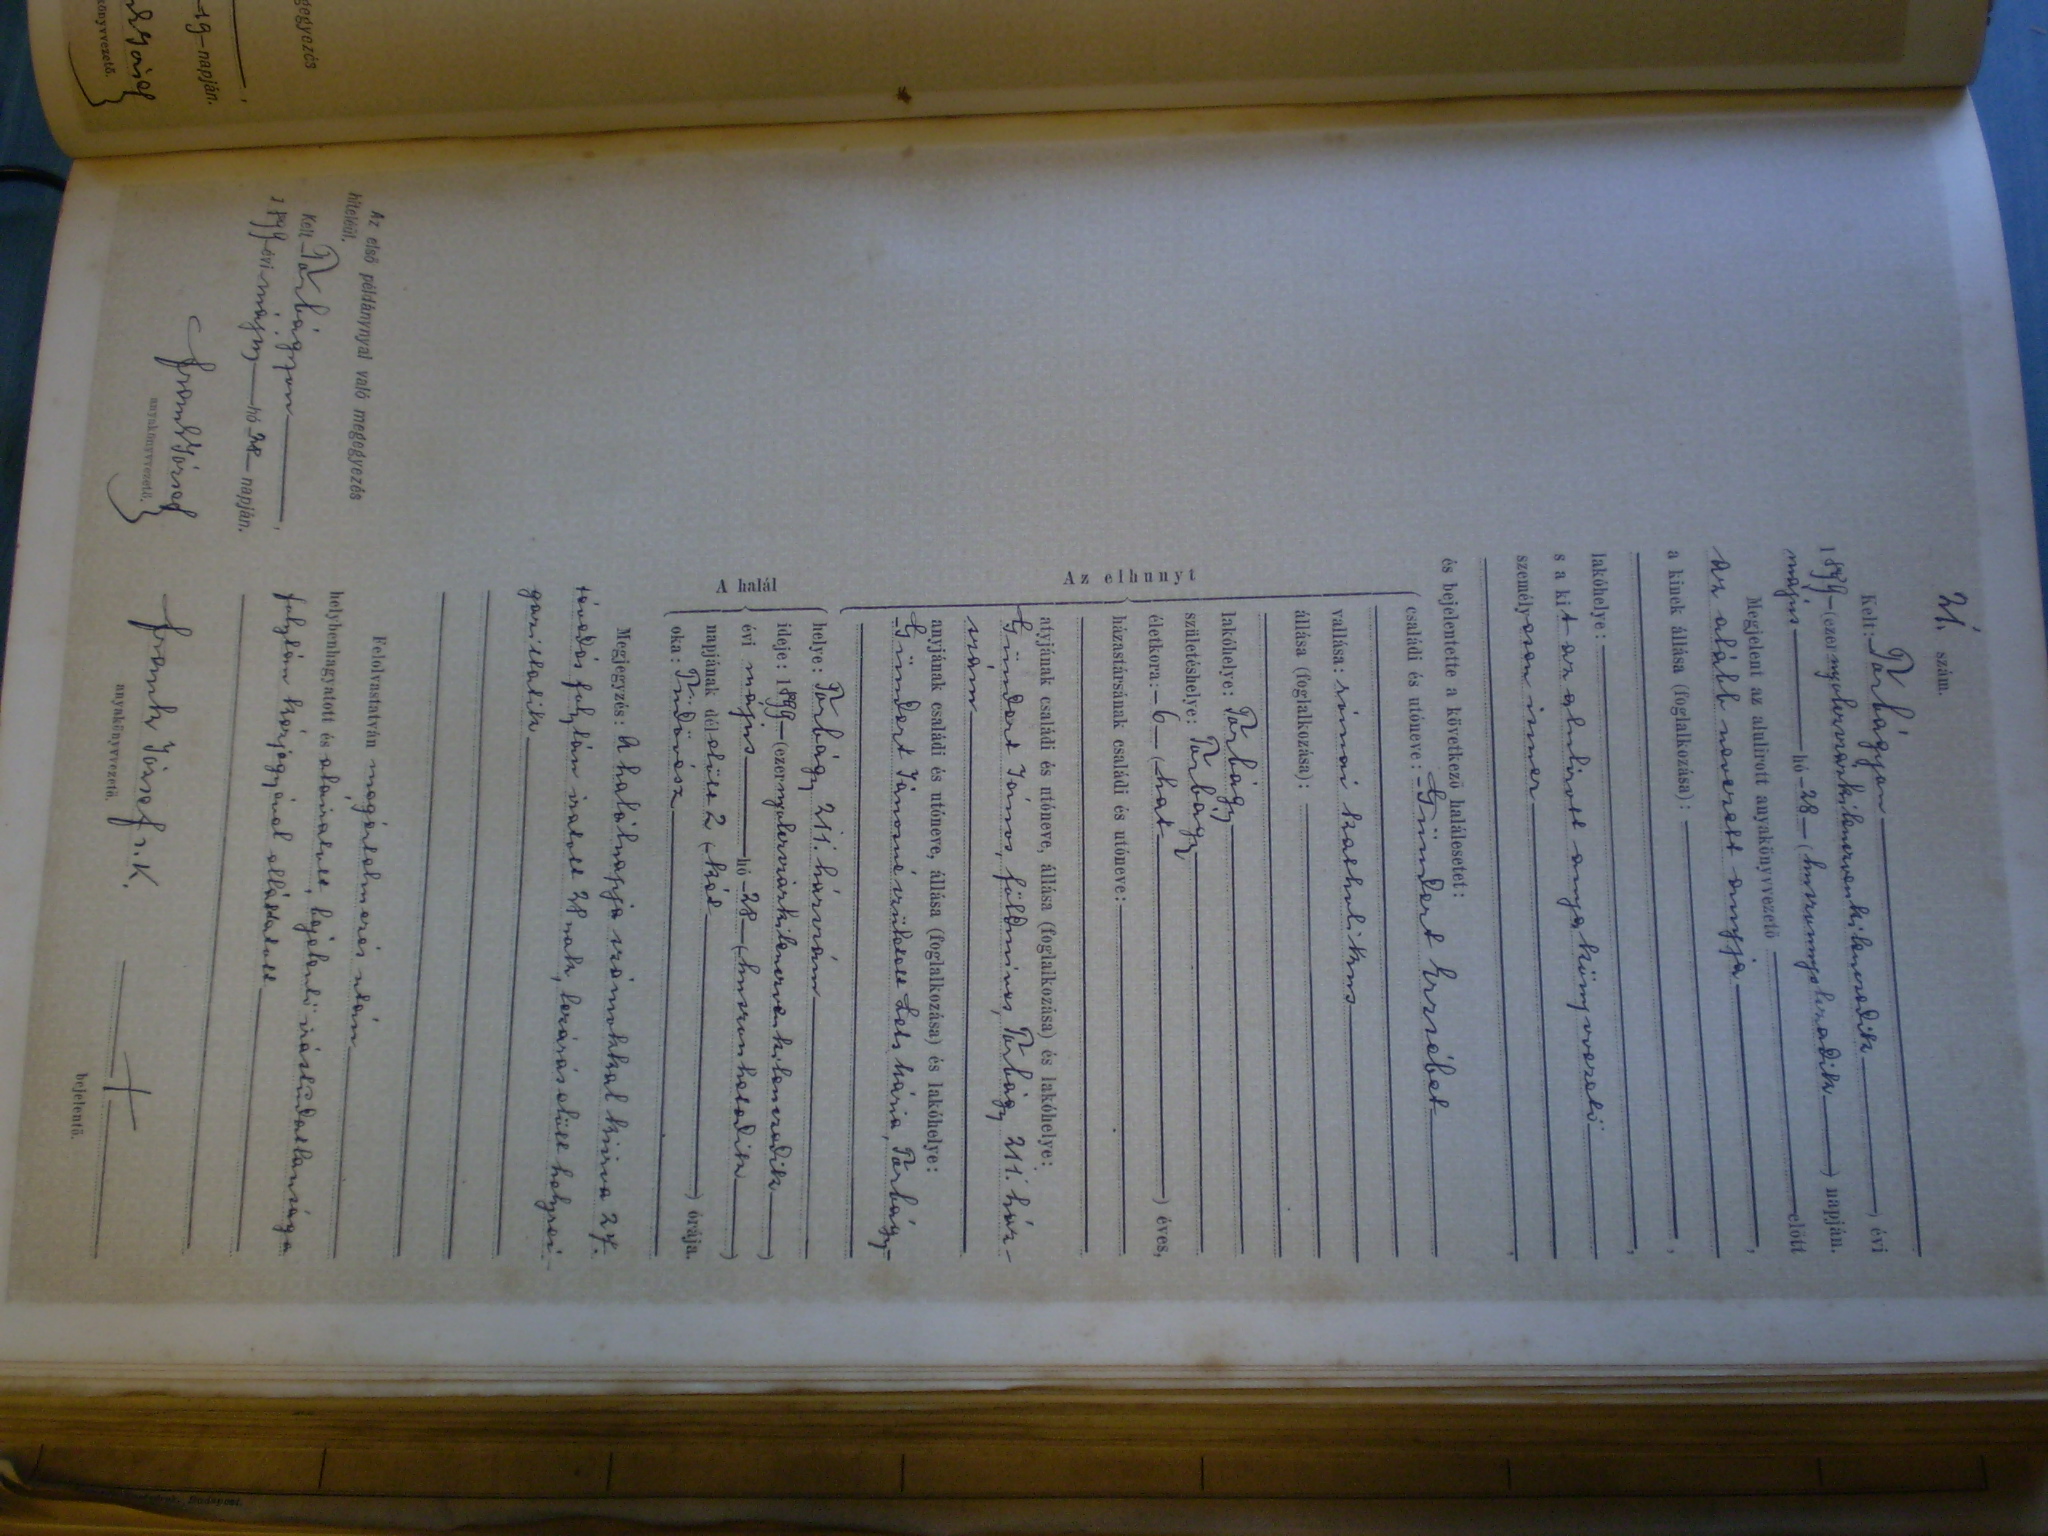 21. szám.
Kelt: Torbágyon
1899 (ezernyolczszázkilenczvenkilenczedik) évi
május hó 28 (huszonnyolczadik) napján.
Megjelent az alulirott anyakönyvvezető előtt
az alább nevezett anyja,
a kinek állása (foglalkozása):
lakóhelye:
s a kit az alulirott anyakönyvvezető
személyesen ismer,
és bejelentette a következő halálesetet:
Az elhunyt
családi és utóneve: Gündert Erzsébet
vallása: római katholikus
állása (foglalkozása):
lakóhelye: Torbágy
születéshelye: Torbágy
életkora: 6 (hat) éves,
házastársának családi és utóneve:
atyjának családi és utóneve, állása (foglalkozása) és lakóhelye:
Gündert János, földmives, Torbágy 211. ház-
szám
anyjának családi és utóneve, állása (foglalkozása) és lakóhelye:
Gündert Jánosné született Mária, Torbágy
A halál
helye: Torbágy 211. házszám
ideje: 1899 (ezernyolczszázkilenczvenkilenczedik)
évi május hó 28 (huszonhatodik)
napjának délelőtt 2 (két) órája.
oka: Tüdővész
Megjegyzés: A halálnapja számokkal kiirva
tévedés folytán iratott 28 nak, lezárás előtt helyes-
Felolvastatván, megértelmezés után
helybenhagyatott és aláiratott, bejelentő irástudatlansága
folytán kézjegyével elláttatott
Frank József s. k.
anyakönyvvezető.
+
bejelentő.
Az első példánynyal való megegyezés
hiteléül.
Kelt Torbágyon,
1899 évi május hó 28 napján.
Frank József
anyakönyvvezető.
egyezés
19 napján.
könyvvezető.
Budapest.